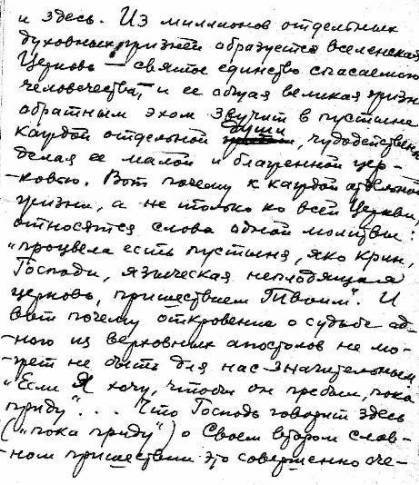 и здесь. Из миллионов отдельных
духовных жизней образуется вселенская
Церковь – святое единство спасаемого
человечества, и ее общая великая жизнь
обратным эхом звучит в пустыне
каждой отдельной души, чудодейственно
делая ее малой и блаженной цер-
-ковью. Вот почему к каждой отдельной
жизни, а не только ко всей Церкви,
относятся слова одной молитвы:
"процвела есть пустыня, яко крин,
Господи, языческая неплодящая
церковь, пришествием Твоим". И
вот почему откровение о судьбе од-
-ного из верховных апостолов не мо-
-жет не быть для нас значительным.
"Если Я хочу, чтобы он пребыл, пока
приду"... Что Господь говорит здесь
("пока приду") о Своем втором слав-
-ном пришествии это совершенно оче-